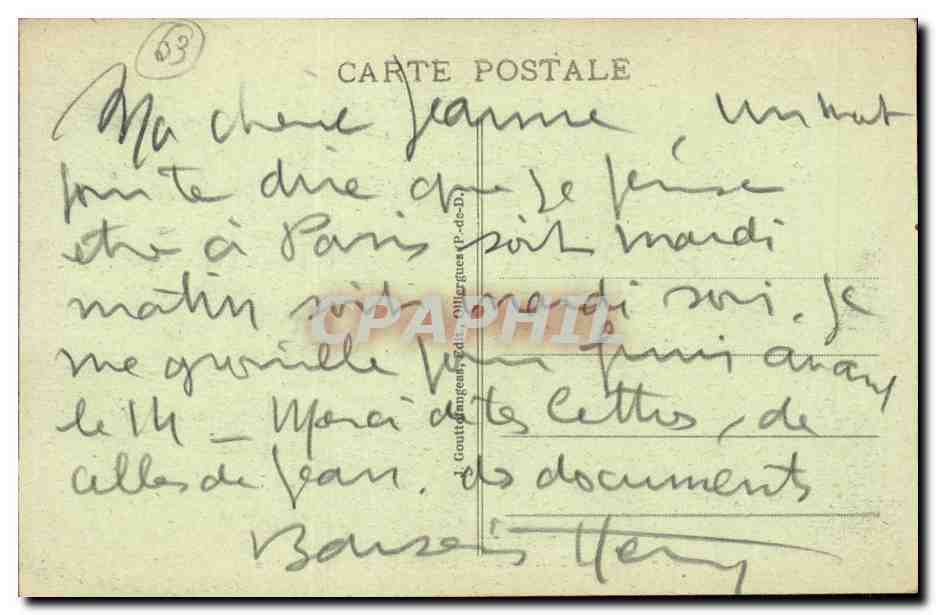 53
CARTE POSTALE
Ma chérie Jeanne, un mot
pour te dire que je pense
être à Paris soit mardi
matin soit mardi soir. Je
me grouille pour finir avant
le 14 _ Merci de tes lettres, de
celles de Jean. des documents
Baisers Henry
J. Gouttefangeas, Edit., Olliergues (P.-de-D.)
CPAPHIL